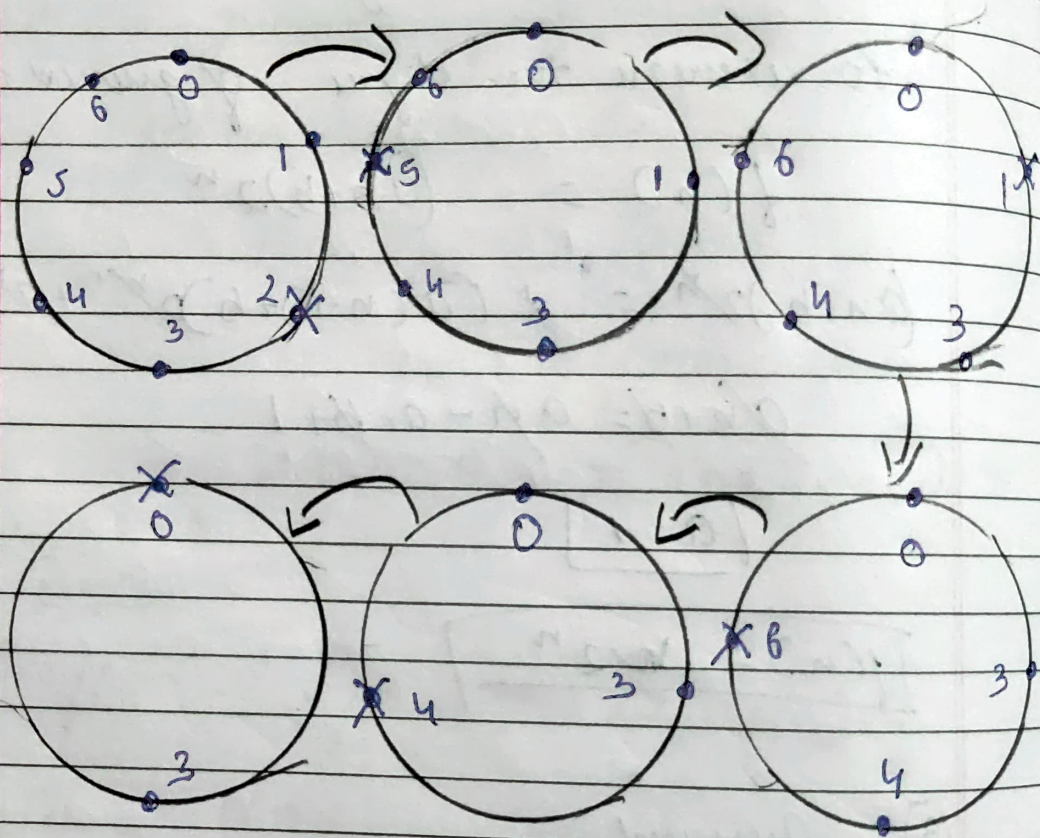 0 1 2 3 4 5 6
0 1 3 4 5 6
0 1 3 4 6
0 3 4 6
0 3 4
0 3